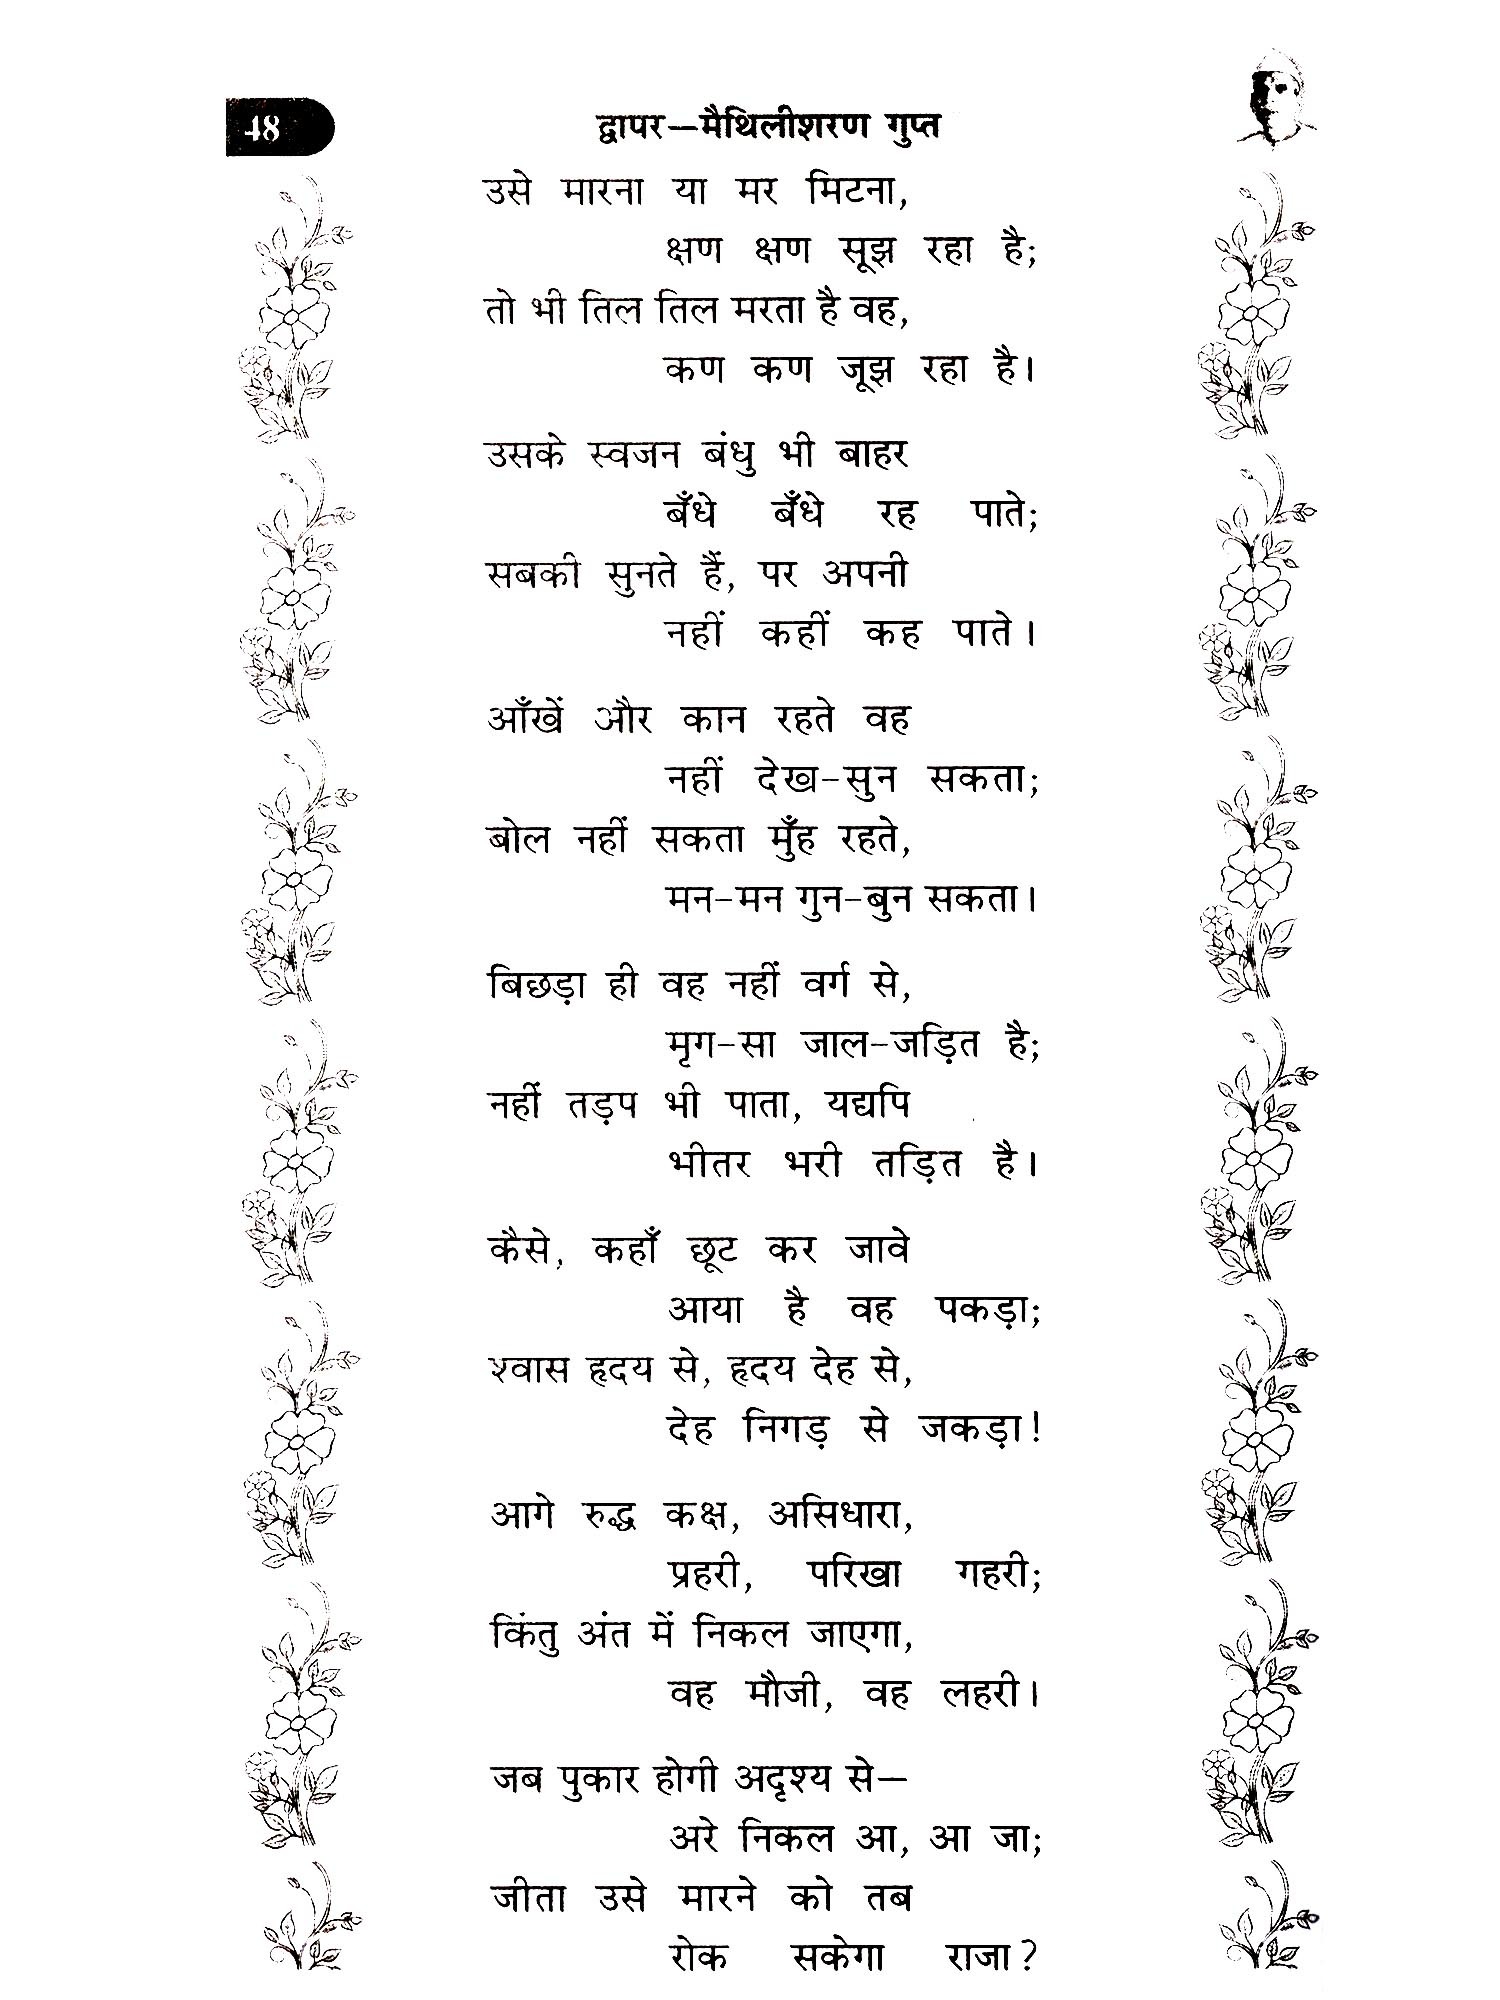 48
द्वापर—मैथिलीशरण गुप्त
उसे मारना या मर मिटना,
क्षण क्षण सूझ रहा है;
तो भी तिल तिल मरता है वह,
कण कण जूझ रहा है।
उसके स्वजन बंधु भी बाहर
बँधे बँधे रह पाते;
सबकी सुनते हैं, पर अपनी
नहीं कहीं कह पाते।
आँखें और कान रहते वह
नहीं देख-सुन सकता;
बोल नहीं सकता मुँह रहते,
मन-मन गुन-बुन सकता।
बिछड़ा ही वह नहीं वर्ग से,
मृग-सा जाल-जड़ित है;
नहीं तड़प भी पाता, यद्यपि
भीतर भरी तड़ित है।
कैसे, कहाँ छूट कर जावे
आया है वह पकड़ा;
श्वास हृदय से, हृदय देह से,
देह निगड़ से जकड़ा!
आगे रुद्ध कक्ष, असिधारा,
प्रहरी, परिखा गहरी;
किंतु अंत में निकल जाएगा,
वह मौजी, वह लहरी।
जब पुकार होगी अदृश्य से—
अरे निकल आ, आ जा;
जीता उसे मारने को तब
रोक सकेगा राजा?